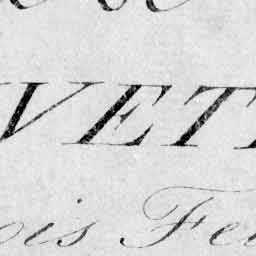 VET
ois Fe